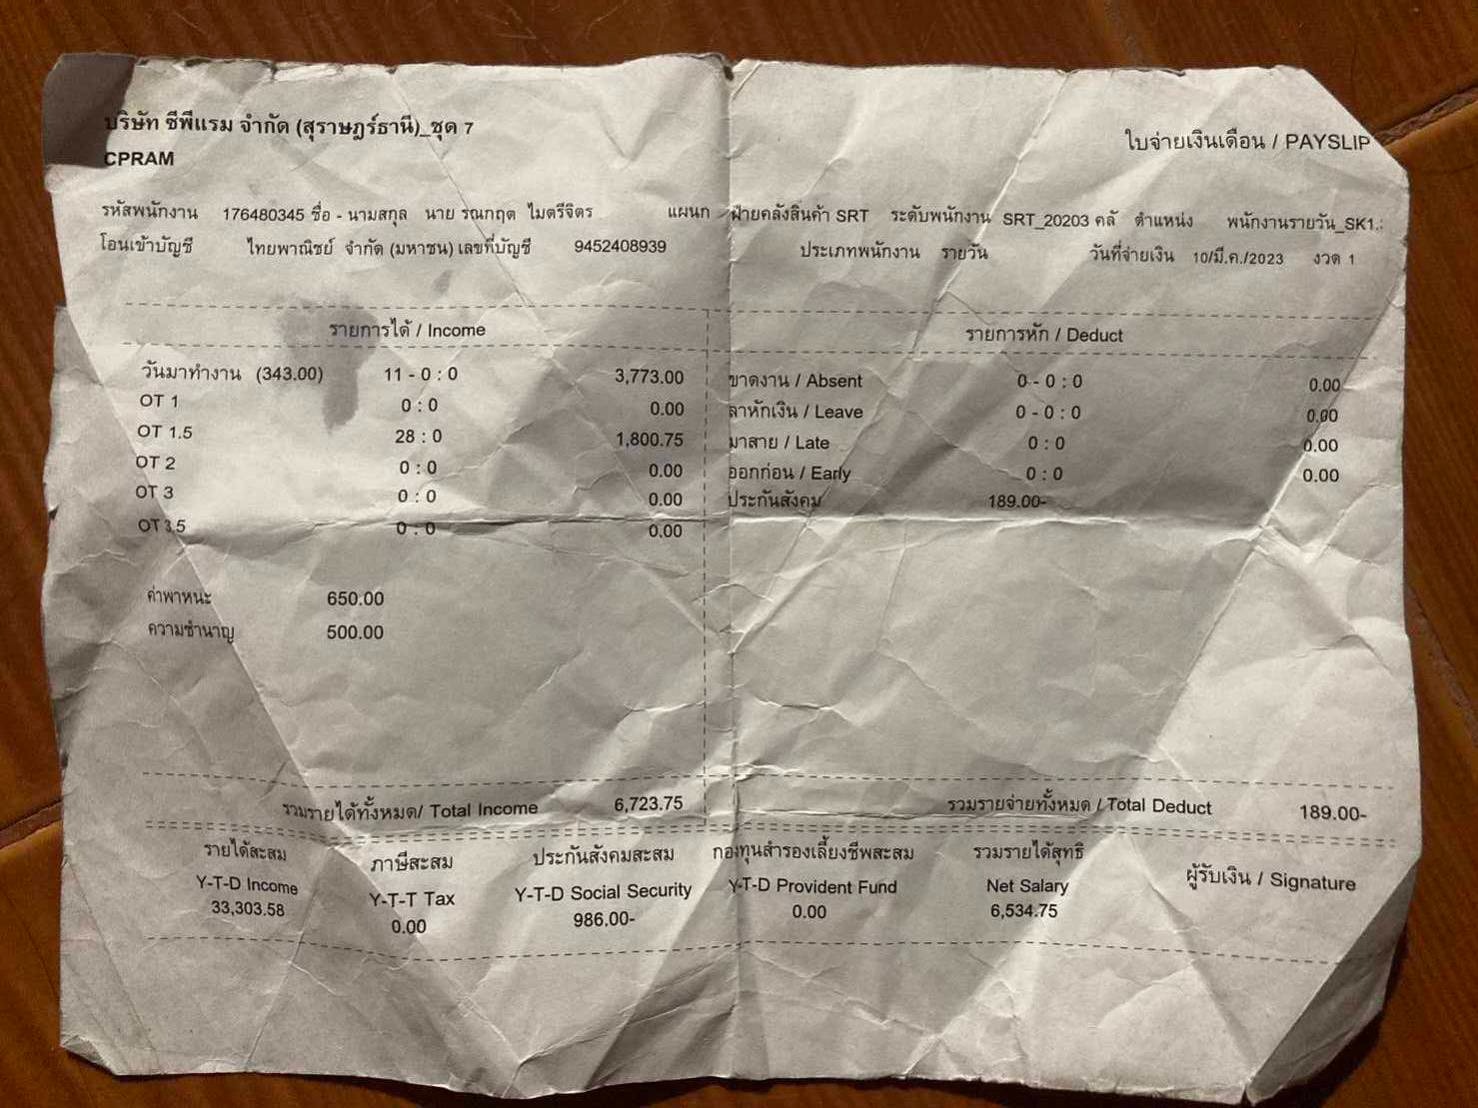 บริษัท ซีพีแรม จำกัด (สุราษฎร์ธานี)_ชุด 7
ใบจ่ายเงินเดือน / PAYSLIP
CPRAM
รหัสพนักงาน 176480345 ชื่อ - นามสกุล นาย รณกฤต ไมตรีจิตร แผนก ฝ่ายคลังสินค้า SRT ระดับพนักงาน SRT_20203 คลั ตำแหน่ง พนักงานรายวัน_SK1.
โอนเข้าบัญชี ไทยพาณิชย์ จำกัด (มหาชน) เลขที่บัญชี 9452408939 ประเภทพนักงาน รายวัน วันที่จ่ายเงิน 10/มี.ค./2023 งวด 1
รายการได้ / Income รายการหัก / Deduct
วันมาทำงาน (343.00) 11 - 0 : 0 3,773.00 ขาดงาน / Absent 0 - 0 : 0 0.00
OT 1 0 : 0 0.00 ลาหักเงิน / Leave 0 - 0 : 0 0.00
OT 1.5 28 : 0 1,800.75 มาสาย / Late 0 : 0 0.00
OT 2 0 : 0 0.00 ออกก่อน / Early 0 : 0 0.00
OT 3 0 : 0 0.00 ประกันสังคม 189.00-
OT 3.5 0 : 0 0.00
ค่าพาหนะ 650.00
ความชำนาญ 500.00
รวมรายได้ทั้งหมด/ Total Income 6,723.75 รวมรายจ่ายทั้งหมด / Total Deduct 189.00-
รายได้สะสม ภาษีสะสม ประกันสังคมสะสม กองทุนสำรองเลี้ยงชีพสะสม รวมรายได้สุทธิ ผู้รับเงิน / Signature
Y-T-D Income Y-T-T Tax Y-T-D Social Security Y-T-D Provident Fund Net Salary
33,303.58 0.00 986.00- 0.00 6,534.75